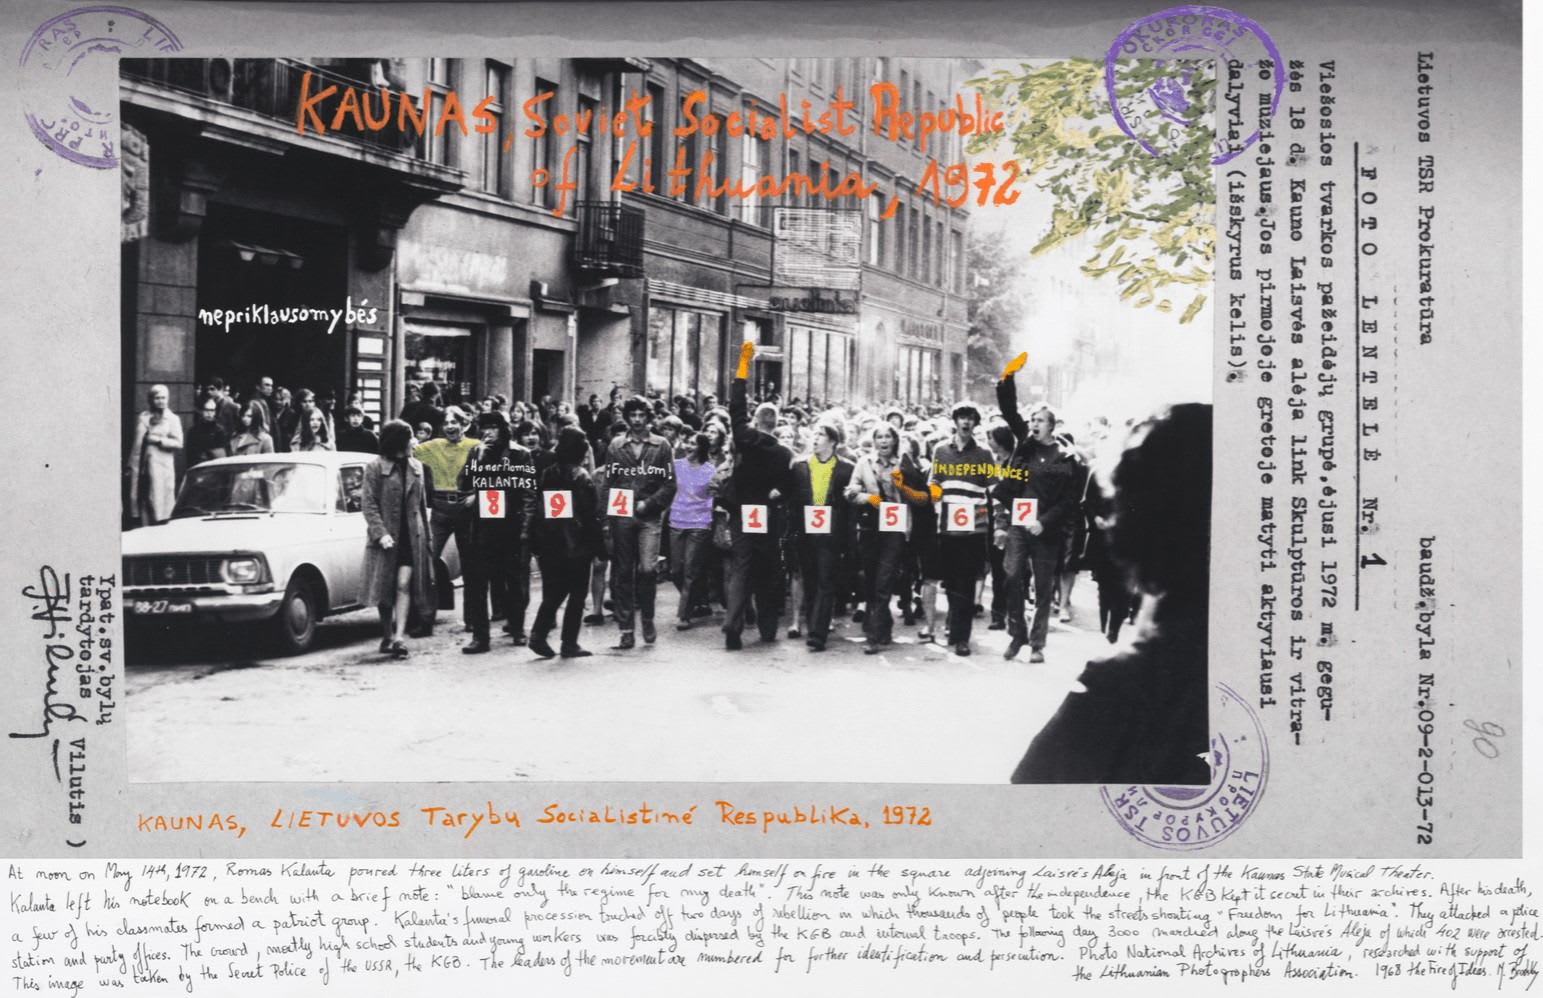 KAUNAS, Soviet Socialist Republic
of Lithuania, 1972
nepriklausomybės
¡Honor Romas
KALANTAS!
¡Freedom!
INDEPENDENCE!
8
9
4
1
3
5
6
7
Lietuvos TSR Prokuratūra baudž.byla Nr.09-2-013-72
90
FOTO LENTELĖ Nr. 1
Viešosios tvarkos pažeidėjų grupė,ėjusi 1972 m. gegu-
žės 18 d. Kauno Laisvės alėja link Skulptūros ir vitra-
žo muziejaus.Jos pirmojoje gretoje matyti aktyviausi
dalyviai (išskyrus kelis).
Ypat.sv.bylų
tardytojas
Vilutis )
LIETUVOS TSR
KAUNAS, LIETUVOS Tarybų Socialistinė Respublika, 1972
At noon on May 14th, 1972, Romas Kalanta poured three liters of gasoline on himself and set himself on fire in the square adjoining Laisvės Aleja in front of the Kaunas State Musical Theater.
Kalanta left his notebook on a bench with a brief note: "blame only the regime for my death". This note was only known after the independence, the KGB kept it secret in their archives. After his death,
a few of his classmates formed a patriot group. Kalanta's funeral procession touched off two days of rebellion in which thousands of people took the streets shouting "Freedom for Lithuania". They attacked a police
station and party offices. The crowd, mostly high school students and young workers was forcibly dispersed by the KGB and internal troops. The following day 3000 marched along the Laisvės Aleja of which 402 were arrested.
This image was taken by the Secret Police of the USSR, the KGB. The leaders of the movement are numbered for further identification and persecution. Photo National Archives of Lithuania, researched with support of
the Lithuanian Photographers Association. 1968 the Fire of Ideas. M. Brodsky